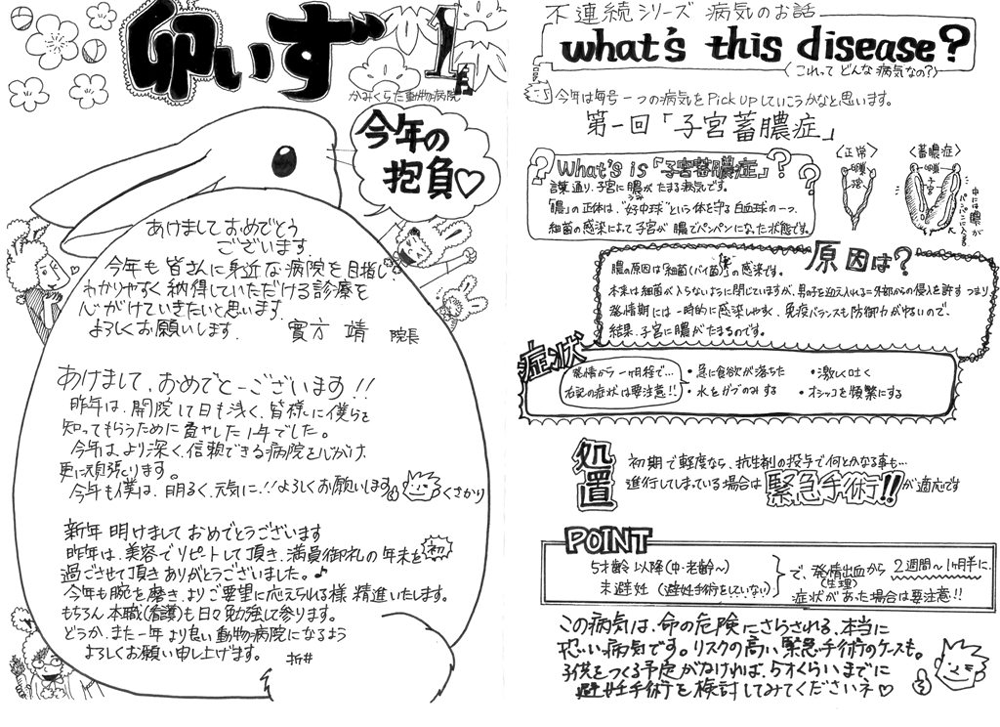 卵いず
1月
かみくらた動物病院
今年の
抱負♡
あけまして おめでとう
ございます
今年も 皆さんに 身近な 病院を 目指し、
わかりやすく 納得していただける 診療を
心がけていきたいと思います。
よろしくお願いします。 實方 靖 院長
あけまして、おめでとーございます!!
昨年は、開院して日も浅く、皆様に僕らを
知ってもらうために費やした1年でした。
今年は、より深く、信頼できる病院を心がけ、
更に頑張ります。
今年も僕は、明るく、元気に!!よろしくお願いします。
くさかり
新年 明けまして おめでとうございます
昨年は、美容で リピートして 頂き、満員御礼の 年末を 初
過ごさせて頂き ありがとうございました。♪
今年も腕を磨き、よりご要望に応えられる様 精進いたします。
もちろん 本職(看護)も日々勉強して参ります。
どうか、また一年 より良い動物病院になるよう
よろしくお願い申し上げます。 折井
不連続シリーズ 病気のお話
what's this disease?
(これって どんな 病気なの?)
今年は毎号 一つの病気を Pick upしていこうかなと思います。
第一回「子宮蓄膿症」
What's is『子宮蓄膿症』
言葉通り、子宮に膿がたまる病気です。
「膿」の正体は、"好中球"という体を守る白血球の一つ、
細菌の感染によって子宮が膿でパンパンになった状態です。
<正常>
<蓄膿症>
中には膿が
パンパンに入る
原因は?
膿の原因は「細菌(バイ菌)」の感染です。
本来は細菌が入らないように閉じていますが、男の子を迎え入れる=外部からの侵入を許す つまり
発情期には一時的に感染しやすく、免疫バランスも防御力がゆるいので、
結果、子宮に膿がたまるのです。
症状
発情から 一ヶ月程で…
右記の症状は要注意!!
・急に食欲が落ちた
・激しく吐く
・水をガブのみする
・オシッコを頻繁にする
処置
初期で軽度なら、抗生剤の投与で何とかなる事も…
進行してしまっている場合は 緊急手術!! が適応です
POINT
5才齢以降(中・老齢〜)
未避妊 (避妊手術をしていない)
で、発情出血から 2週間〜1ヶ月半に、
(生理)
症状があった場合は要注意!!
この病気は、命の危険にさらされる、本当に
恐い病気です。リスクの高い緊急手術のケースも。
子供をつくる予定がなければ、5才くらいまでに
避妊手術を検討してみてくださいネ♡